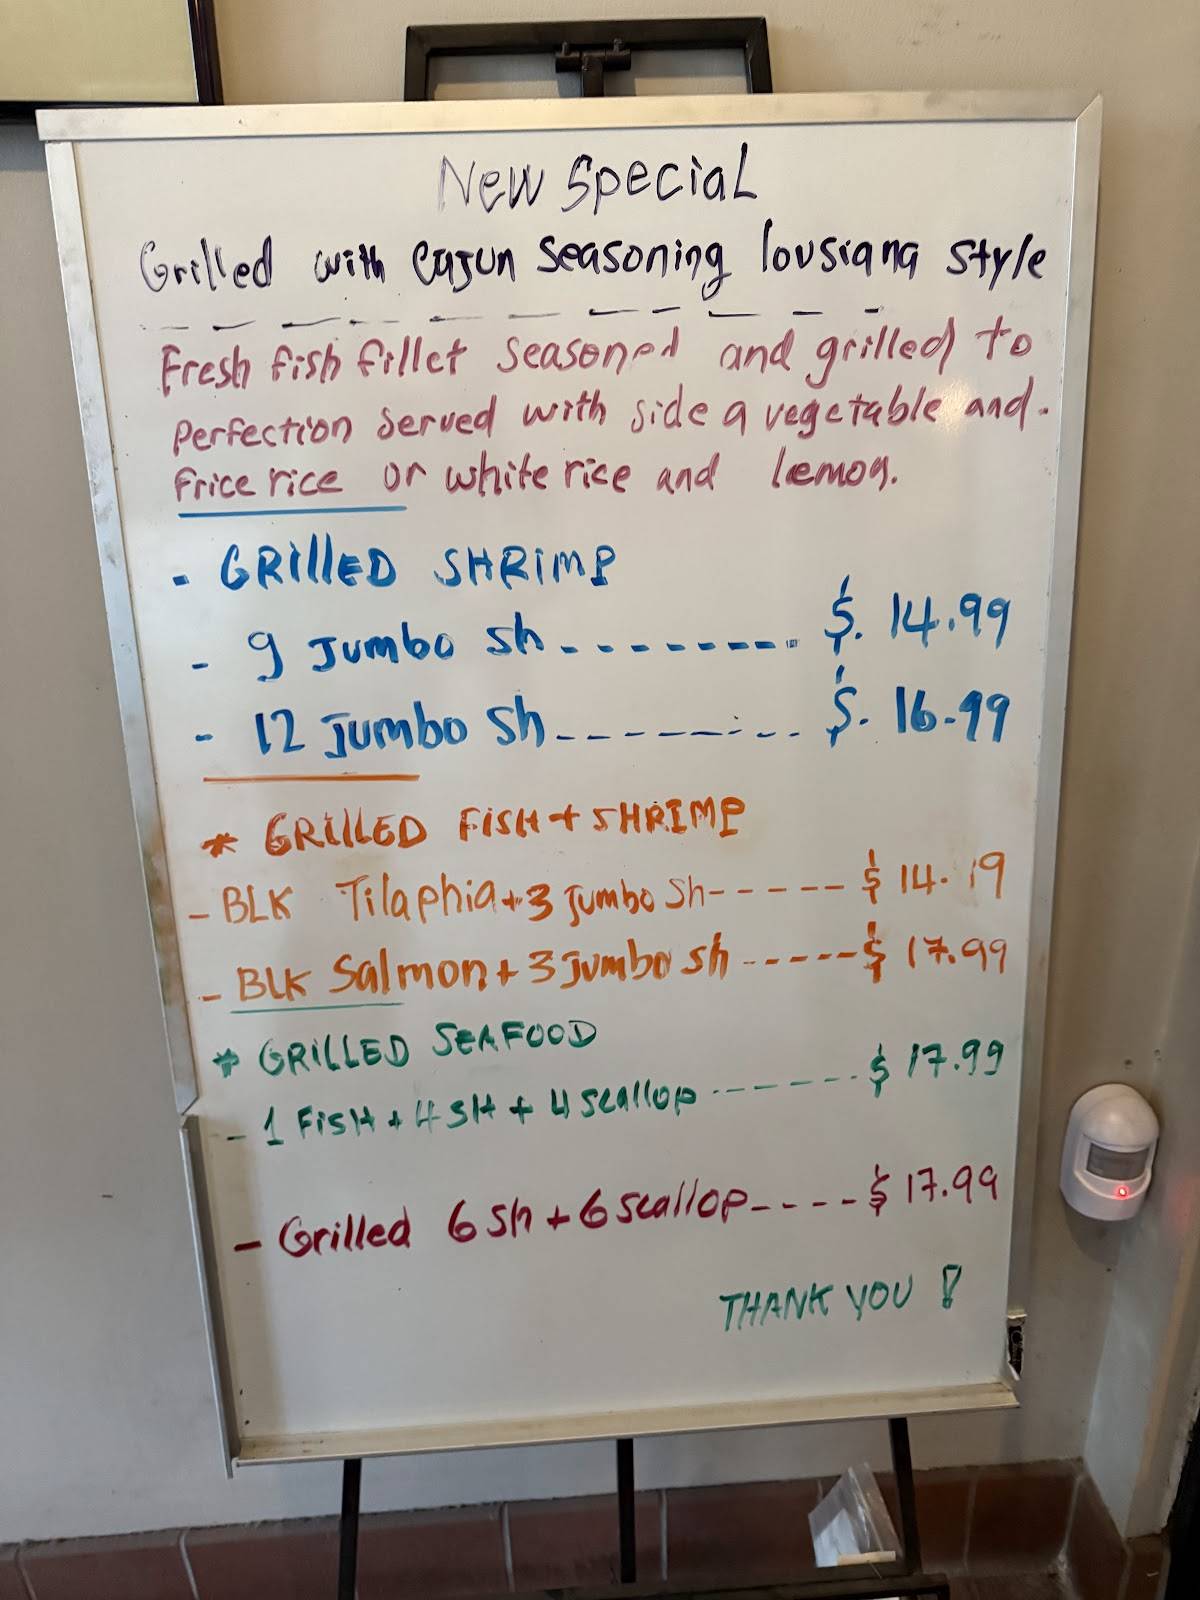 New Special
Grilled with Cajun Seasoning lousiana style
Fresh fish fillet seasoned and grilled to
perfection served with side a vegetable and.
frice rice or white rice and lemon.
- GRillED SHRIMP
- 9 Jumbo Sh -------- $. 14.99
- 12 Jumbo Sh --------- $. 16.99
* GRillED FiSH + SHRIMP
- BLK Tilaphia + 3 Jumbo Sh ------ $ 14.19
- BLK Salmon + 3 Jumbo sh ------ $ 17.99
* GRILLED SEAFOOD
- 1 FiSH + 4 SH + 4 Scallop ------- $ 17.99
- Grilled 6 Sh + 6 Scallop ---- $ 17.99
THANK YOU !